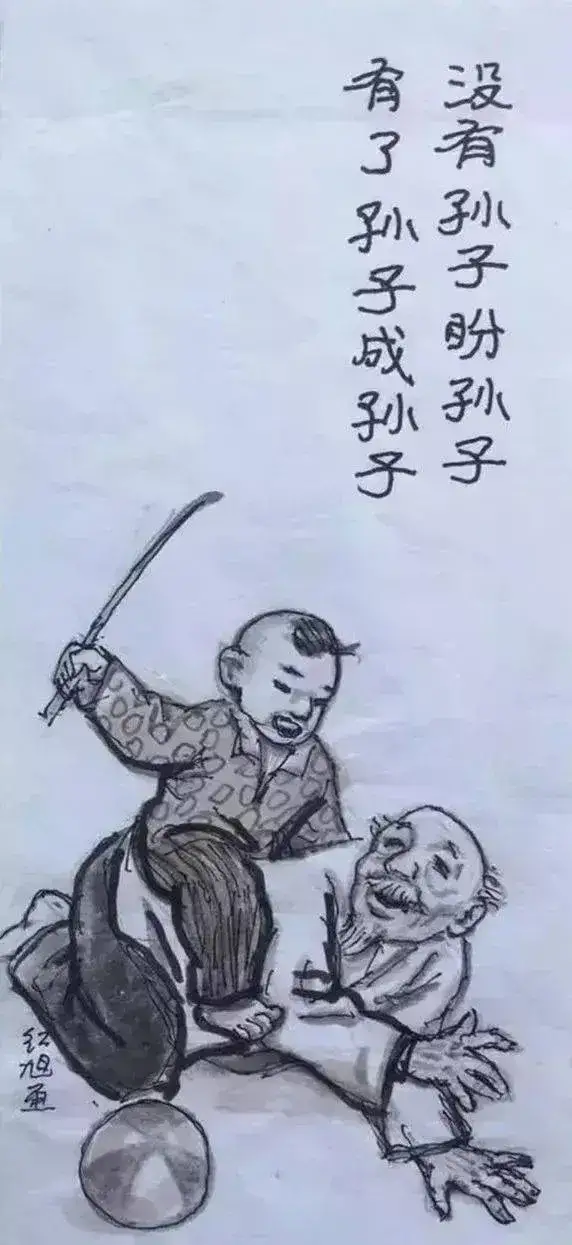 没有孙子盼孙子
有了孙子成孙子
红旭画